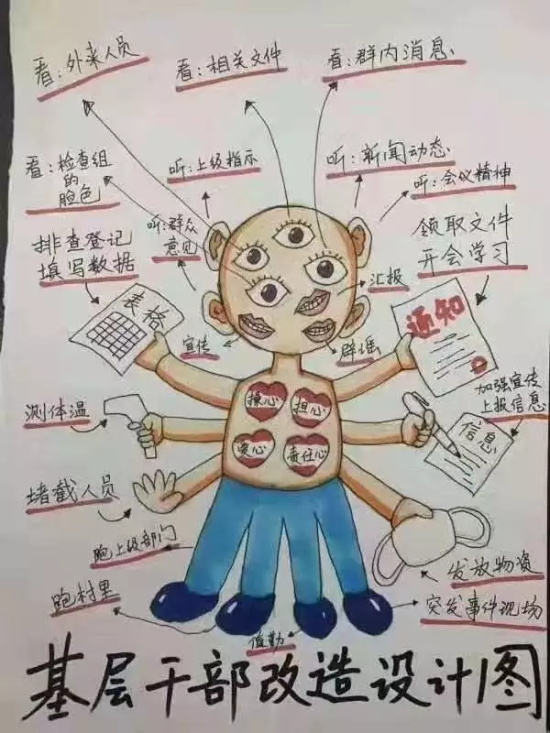 看:外来人员
看:相关文件
看:群内消息
看:检查组
的
脸色
听:上级指示
听:新闻动态
听:会议精神
听:群众
意见
领取文件
开会学习
排查登记
填写数据
汇报
表格
通知
宣传
辟谣
加强宣传
上报信息
操心
担心
测体温
信息
爱心
责任心
堵截人员
跑上级部门
发放物资
跑村里
突发事件现场
值勤
基层干部改造设计图